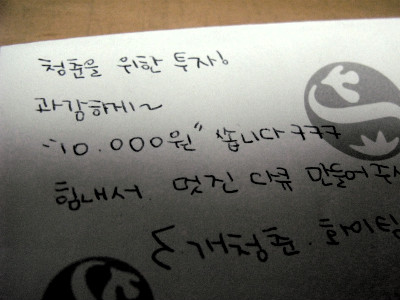 청춘을 위한 투자!
과감하게~
"10.000원" 쏩니다 ㅋㅋㅋ
힘내서. 멋진 다큐 만들어주시
{ 개청춘. 화이팅